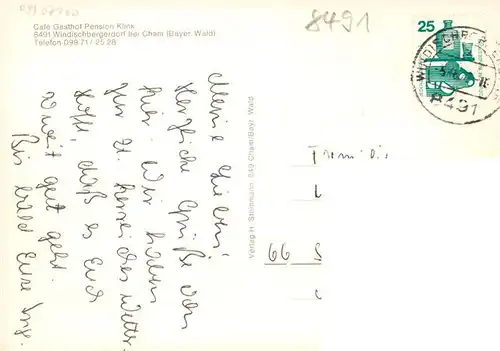 Café Gasthof Pension Klink
8491 Windischbergerdorf bei Cham (Bayer. Wald)
Telefon 099 71 / 25 28
8491
25
8491
Meine Lieben!
Herzliche Grüße von
hier. Wir haben
zur Zt. herrliches Wetter.
Hoffe, daß es Euch
soweit gut geht.
Bis bald Eure
Verlag H. Stellnmann 849 Cham/Bayr. Wald
Familie
66 S